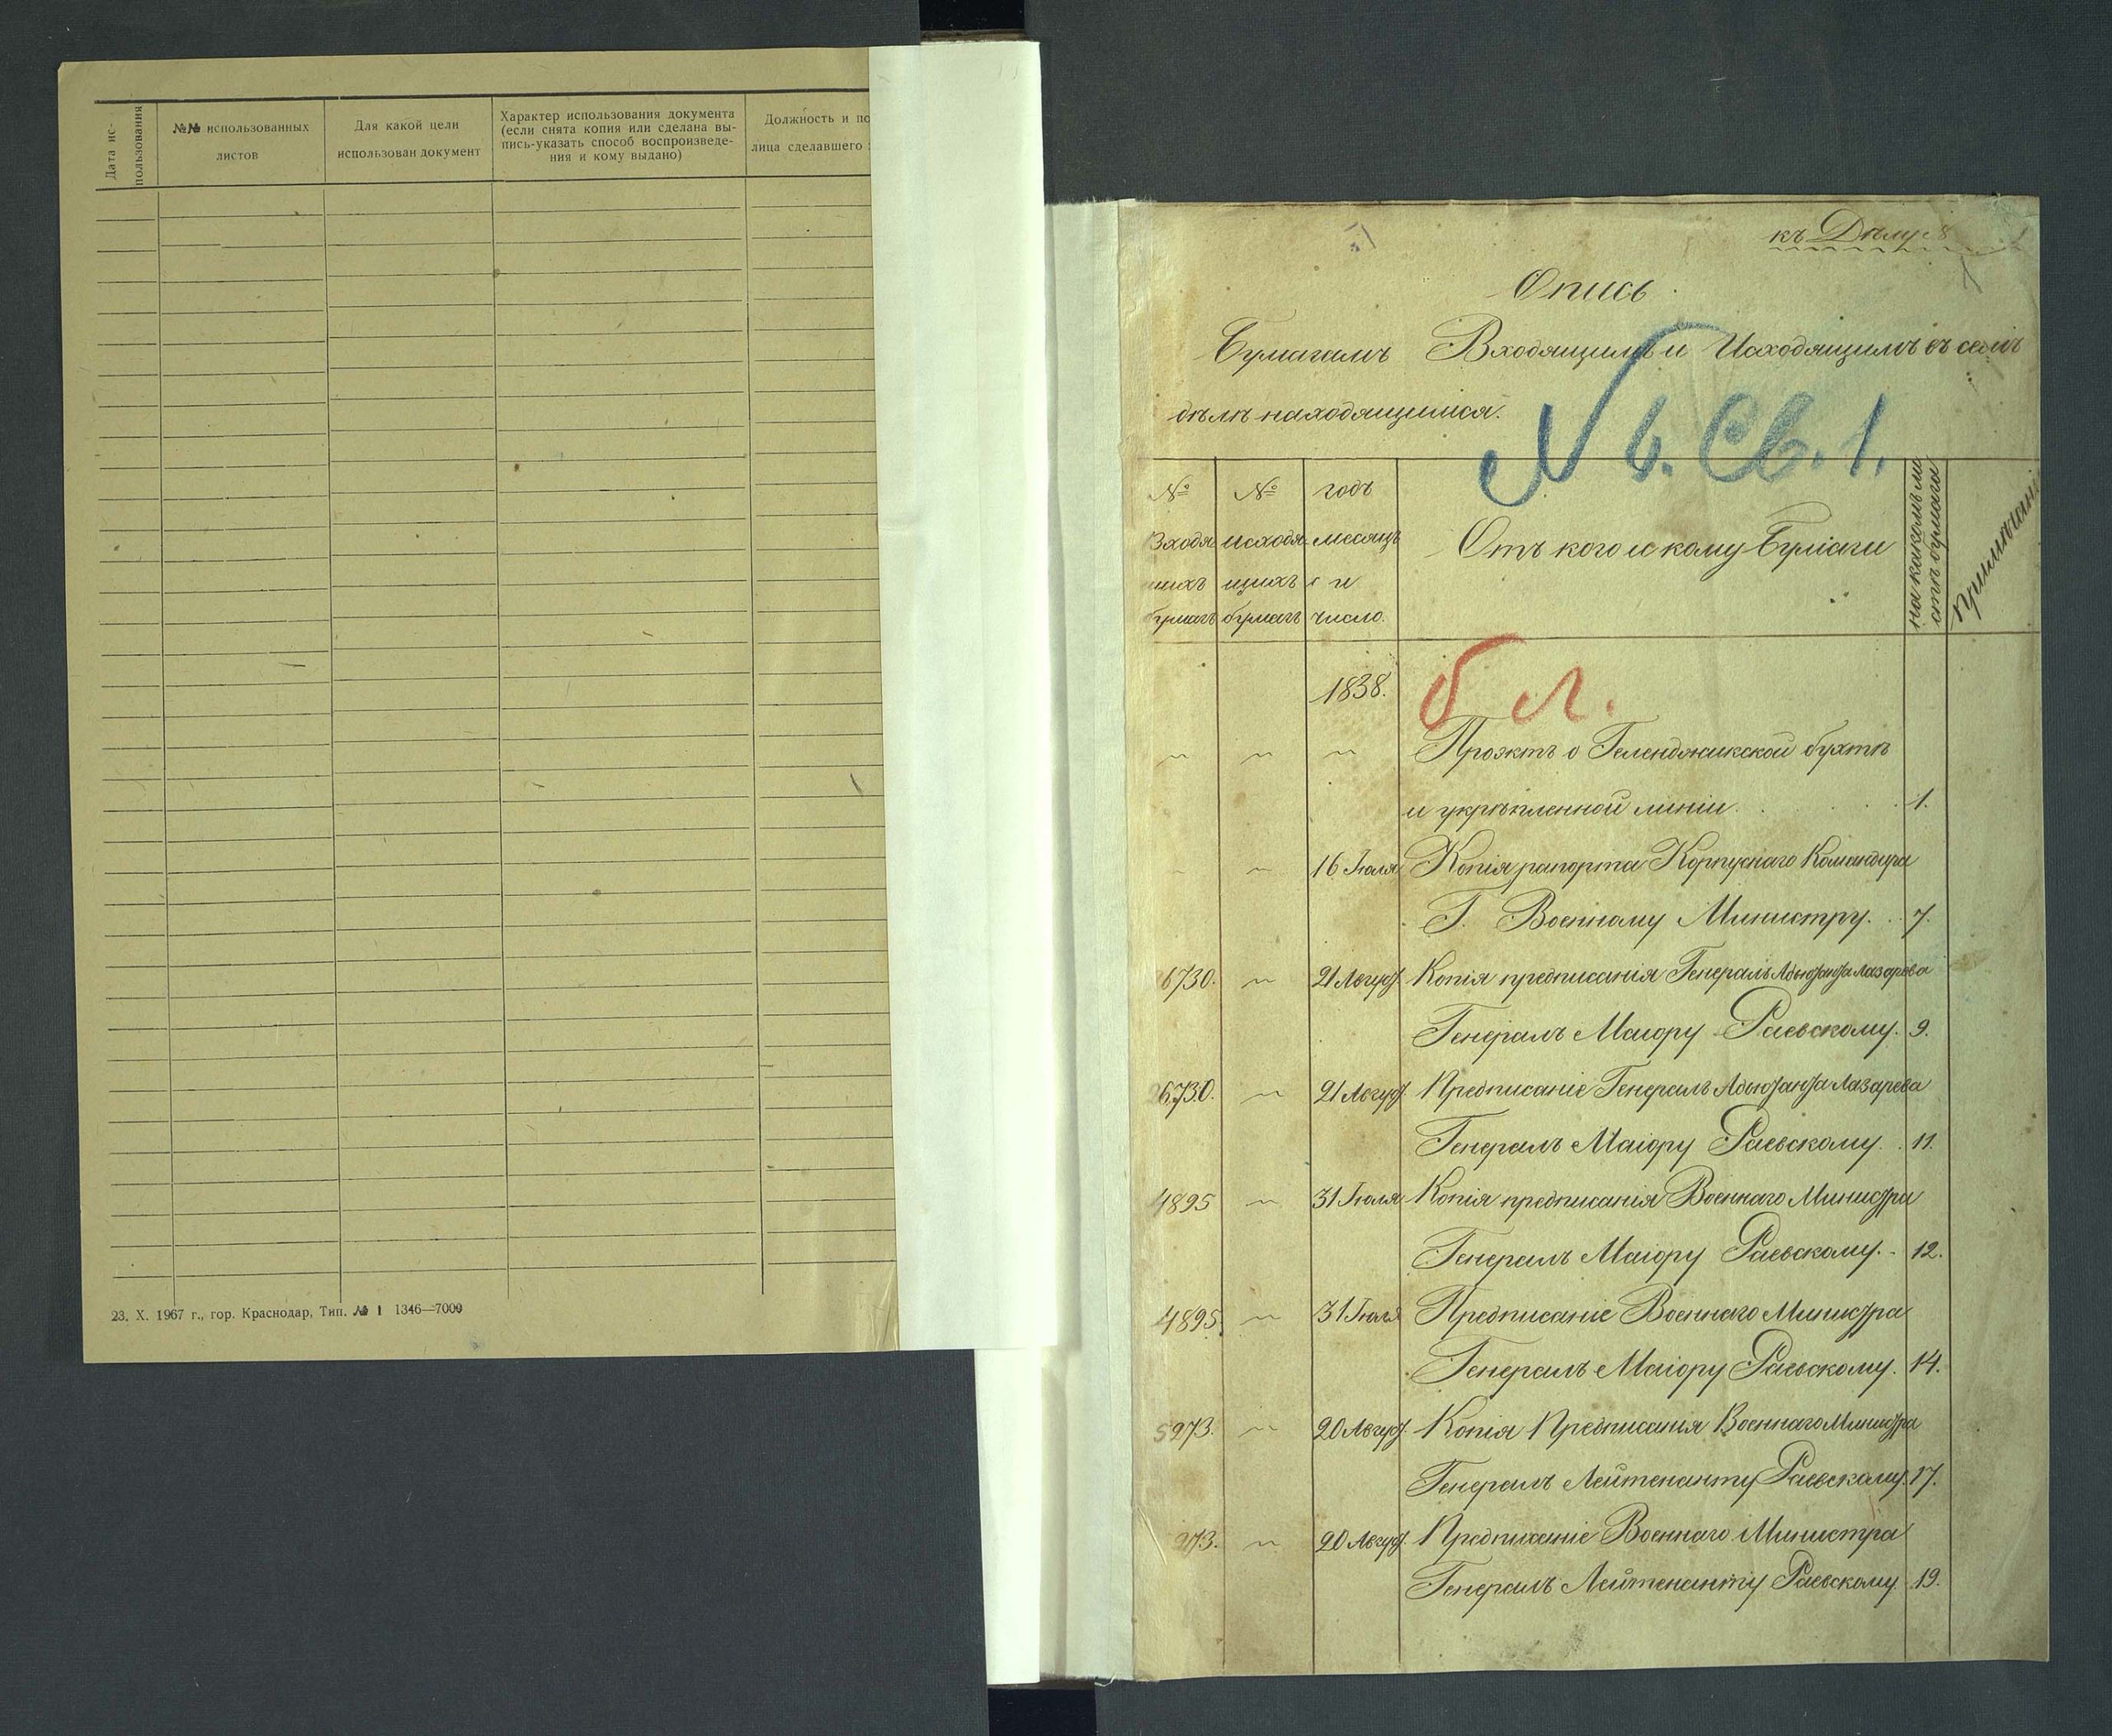 Дата ис-
пользования
№№ использованных
листов
Для какой цели
использован документ
Характер использования документа
(если снята копия или сделана вы-
пись-указать способ воспроизведе-
ния и кому выдано)
Должность и по
лица сделавшего
23. X. 1967 г., гор. Краснодар, Тип. № 1 1346—7000
къ Дѣлу
Опись
Бумагамъ Входящимъ и Исходящимъ въ семъ
дѣлѣ находящимся.
N 6. Св. 1.
№ Входя щихъ бумагъ
№ исходя щихъ бумагъ
годъ месяцъ и число.
Отъ кого и кому бумаги
на какомъ ли
стѣ бумага
Примѣчан
1838.
б л.
" " " Проэктъ о Геленджикской бухтѣ
и укрѣпленной линіи. 1.
" 16 Іюля Копія рапорта Корпуснаго Командира
Г. Военному Министру. 7.
6730. " 21 Август. Копія предписанія Генералъ Адъютанта Лазарева
Генералъ Маіору Раевскому. 9.
26730. " 21 Август. Предписаніе Генералъ Адъютанта Лазарева
Генералъ Маіору Раевскому. 11.
4895 " 31 Іюля Копія предписанія Военнаго Министра
Генералъ Маіору Раевскому. 12.
4895. " 31 Іюля Предписаніе Военнаго Министра
Генералъ Маіору Раевскому. 14.
5273. " 20 Август. Копія Предписанія Военнаго Министра
Генералъ Лейтенанту Раевскому. 17.
273. " 20 Август. Предписаніе Военнаго Министра
Генералъ Лейтенанту Раевскому 19.